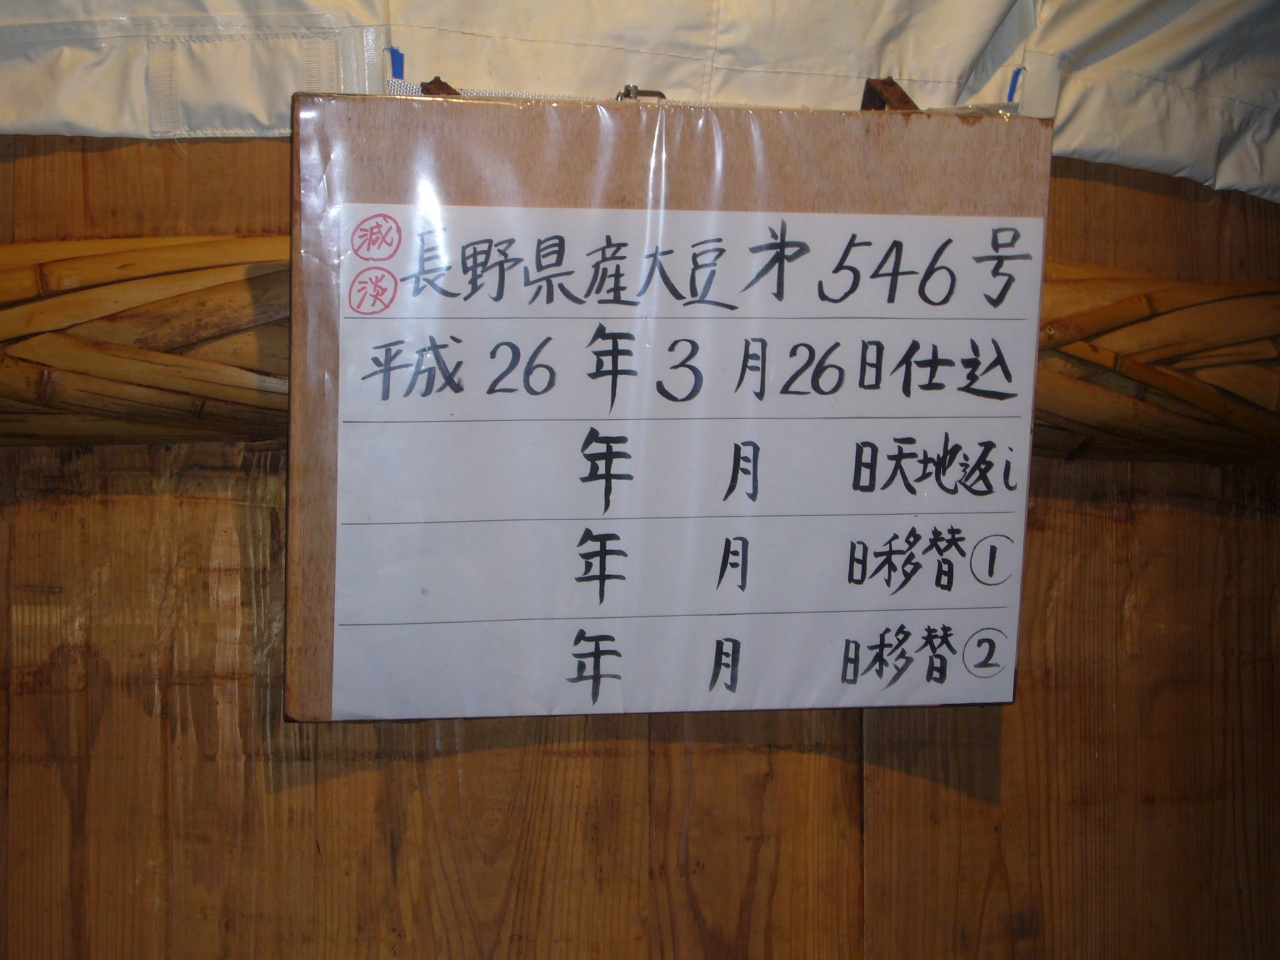 減 淡 長野県産大豆 第546号
平成26年3月26日仕込
年 月 日天地返し
年 月 日移替①
年 月 日移替②